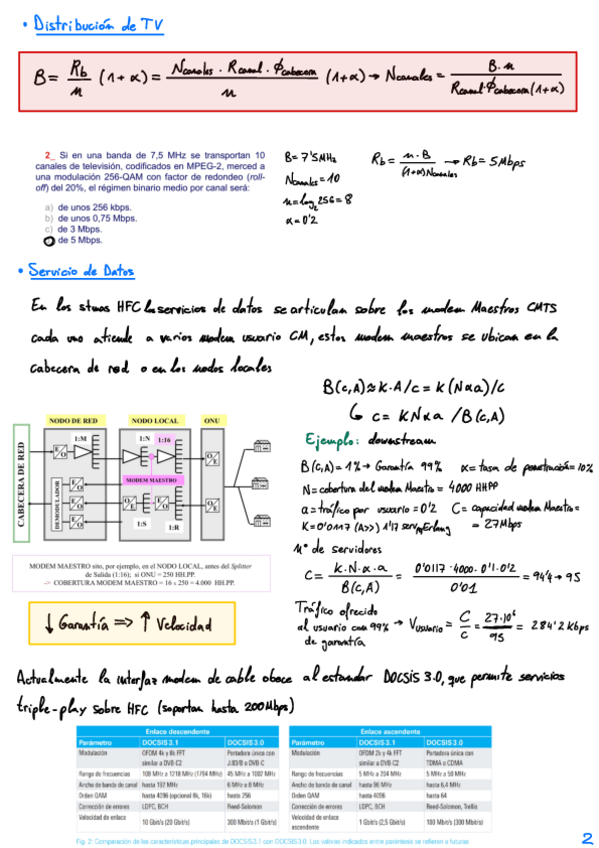 • Distribución de TV
B = Rb/n (1+α) = Ncanales · Rcanal · Φcabecera / n (1+α) → Ncanales = B·n / Rcanal·Φcabecera(1+α)
2_ Si en una banda de 7,5 MHz se transportan 10
canales de televisión, codificados en MPEG-2, merced a
una modulación 256-QAM con factor de redondeo (roll-
off) del 20%, el régimen binario medio por canal será:
a) de unos 256 kbps.
b) de unos 0,75 Mbps.
c) de 3 Mbps.
de 5 Mbps.
B = 7'5 MHz
Ncanales = 10
n = log₂ 256 = 8
α = 0'2
Rb = n·B / (1+α) Ncanales → Rb = 5 Mbps
• Servicio de Datos
En los stmas HFC los servicios de datos se articulan sobre los modem Maestros CMTS
cada uno atiende a varios modem usuario CM, estos modem maestros se ubican en la
cabecera de red o en los nodos locales
B(c,A) ≈ K·A/c = K(Nαa)/c
↳ c = KNαa / B(c,A)
NODO DE RED NODO LOCAL ONU
CABECERA DE RED
E/O 1:M
E/O
E/O
E/O
DEMODULADOR
1:N 1:16
MODEM MAESTRO
O/E E/O O/E
1:S 1:R
O/E
O/E
MODEM MAESTRO sito, por ejemplo, en el NODO LOCAL, antes del Splitter
de Salida (1:16); si ONU = 250 HH.PP.
-> COBERTURA MODEM MAESTRO = 16 x 250 = 4.000 HH.PP.
Ejemplo: downstream
B(C,A) = 1% → Garantía 99% α = tasa de penetración = 10%
N = cobertura del modem Maestro = 4000 HHPP
a = tráfico por usuario = 0'2 C = capacidad modem Maestro =
K = 0'0117 (A>>) 1'17 serv/Erlang = 27Mbps
nº de servidores
C = K·N·α·a / B(C,A) = 0'0117·4000·0'1·0'2 / 0'01 = 94'4 → 95
Tráfico ofrecido
al usuario con 99% → Vusuario = C/c = 27·10⁶/95 = 284'2 Kbps
de garantía
↓ Garantía ⇒ ↑ Velocidad
Actualmente la interfaz modem de cable obece al estandar DOCSIS 3.0, que permite servicios
triple-play sobre HFC (soportan hasta 200Mbps)
Enlace descendente
Parámetro DOCSIS 3.1 DOCSIS 3.0
Modulación OFDM 4k y 8k FFT Portadora única con
similar a DVB C2 J.83/B o DVB C
Rango de frecuencias 108 MHz a 1218 MHz (1794 MHz) 45 MHz a 1002 MHz
Ancho de banda de canal hasta 192 MHz 6 MHz a 8 MHz
Orden QAM hasta 4096 (opcional 8k, 16k) hasta 256
Corrección de errores LDPC, BCH Reed-Solomon
Velocidad de enlace 10 Gbit/s (20 Gbit/s) 300 Mbit/s (1 Gbit/s)
Enlace ascendente
Parámetro DOCSIS 3.1 DOCSIS 3.0
Modulación OFDM 2k y 4k FFT Portadora única con
similar a DVB-C2 TDMA o CDMA
Rango de frecuencias 5 MHz a 204 MHz 5 MHz a 50 MHz
Ancho de banda de canal hasta 96 MHz hasta 6,4 MHz
Orden QAM hasta 4096 hasta 64
Corrección de errores LDPC, BCH Reed-Solomon, Trellis
Velocidad de enlace ascendente 1 Gbit/s (2,5 Gbit/s) 100 Mbit/s (300 Mbit/s)
Fig. 2: Comparación de las características principales de DOCSIS 3.1 con DOCSIS 3.0. Los valores indicados entre paréntesis se refieren a futuras
2